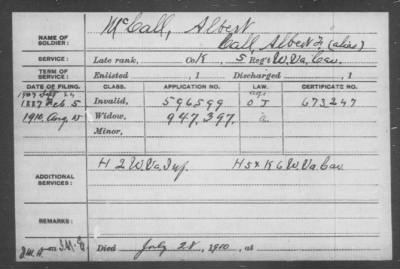 NAME OF SOLDIER: McCall, Albert
Call, Albert F. (alias)
SERVICE: Late rank, Co K, 5 Reg't W. Va. Cav.
TERM OF SERVICE: Enlisted , 1 Discharged , 1
DATE OF FILING. CLASS. APPLICATION NO. LAW. CERTIFICATE NO.
1887 Feb 5 Invalid, 596599 O J 673247
1910, Aug 15 Widow, 947.397. a.
Minor,
ADDITIONAL SERVICES: H 2 W. Va. Inf. H 5 & K 6 W. Va. Cav
REMARKS:
Died July 28, 1910, at